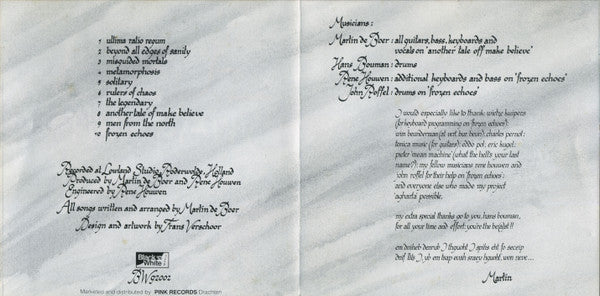 1 ultima ratio regum
2 beyond all edges of sanity
3 misguided mortals
4 metamorphosis
5 solitary
6 rulers of chaos
7 the legendary
8 another tale of make believe
9 men from the north
10 frozen echoes
Recorded at Lowland Studio, Roderwolde, Holland
Produced by Martin de Boer and Rene Houwen
Engineered by Rene Houwen
All songs written and arranged by Martin de Boer
Design and artwork by Frans Verschoor
Black &
White
BW92002
Marketed and distributed by PINK RECORDS Drachten
Musicians:
Martin de Boer: all guitars, bass, keyboards and
vocals on 'another tale off make believe'
Hans Bouman: drums
Rene Houwen: additional keyboards and bass on 'frozen echoes'
John Roffel: drums on 'frozen echoes'
I would especially like to thank: wietze kuipers
(for keyboard programming on 'frozen echoes');
wim beunderman (at vert, but beun); charles pernot;
tonica music (for guitars); eddo pol; eric kugel;
pieter 'mean machine' (what the hell's your last
name?); my fellow musicians rene houwen and
john roffel for their help on 'frozen echoes';
and everyone else who made my project
agharta' possible.
my extra special thanks go to you, hans bouman,
for all your time and effort: you're the be(a)st !!
Martin